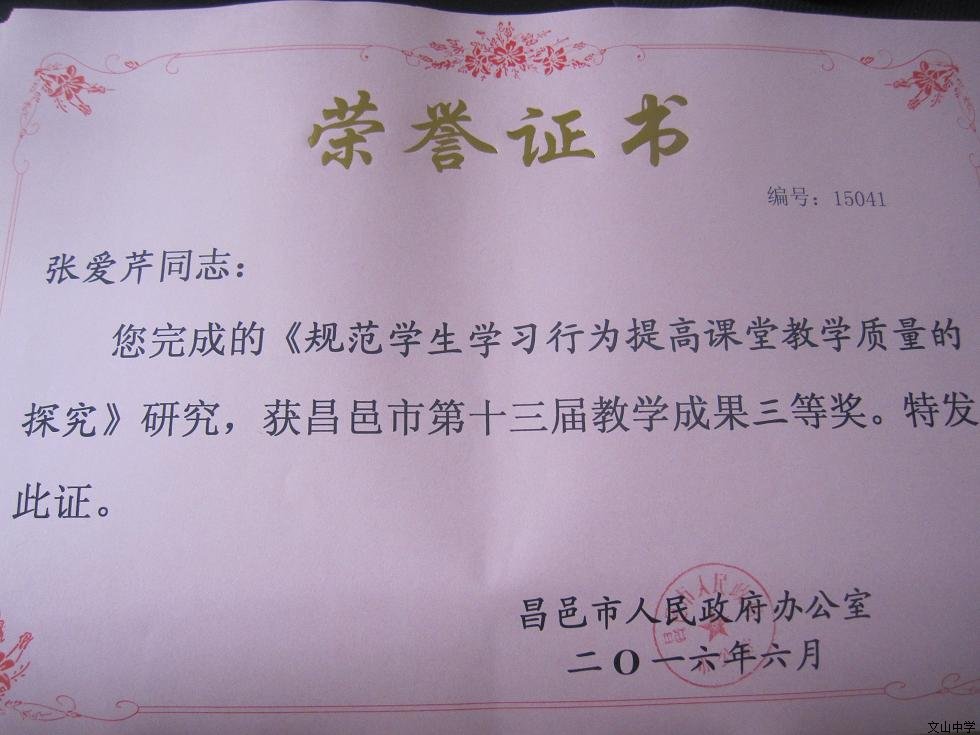 荣誉证书
编号：15041
张爱芹同志：
您完成的《规范学生学习行为提高课堂教学质量的
探究》研究，获昌邑市第十三届教学成果三等奖。特发
此证。
昌邑市人民政府办公室
二O一六年六月
文山中学